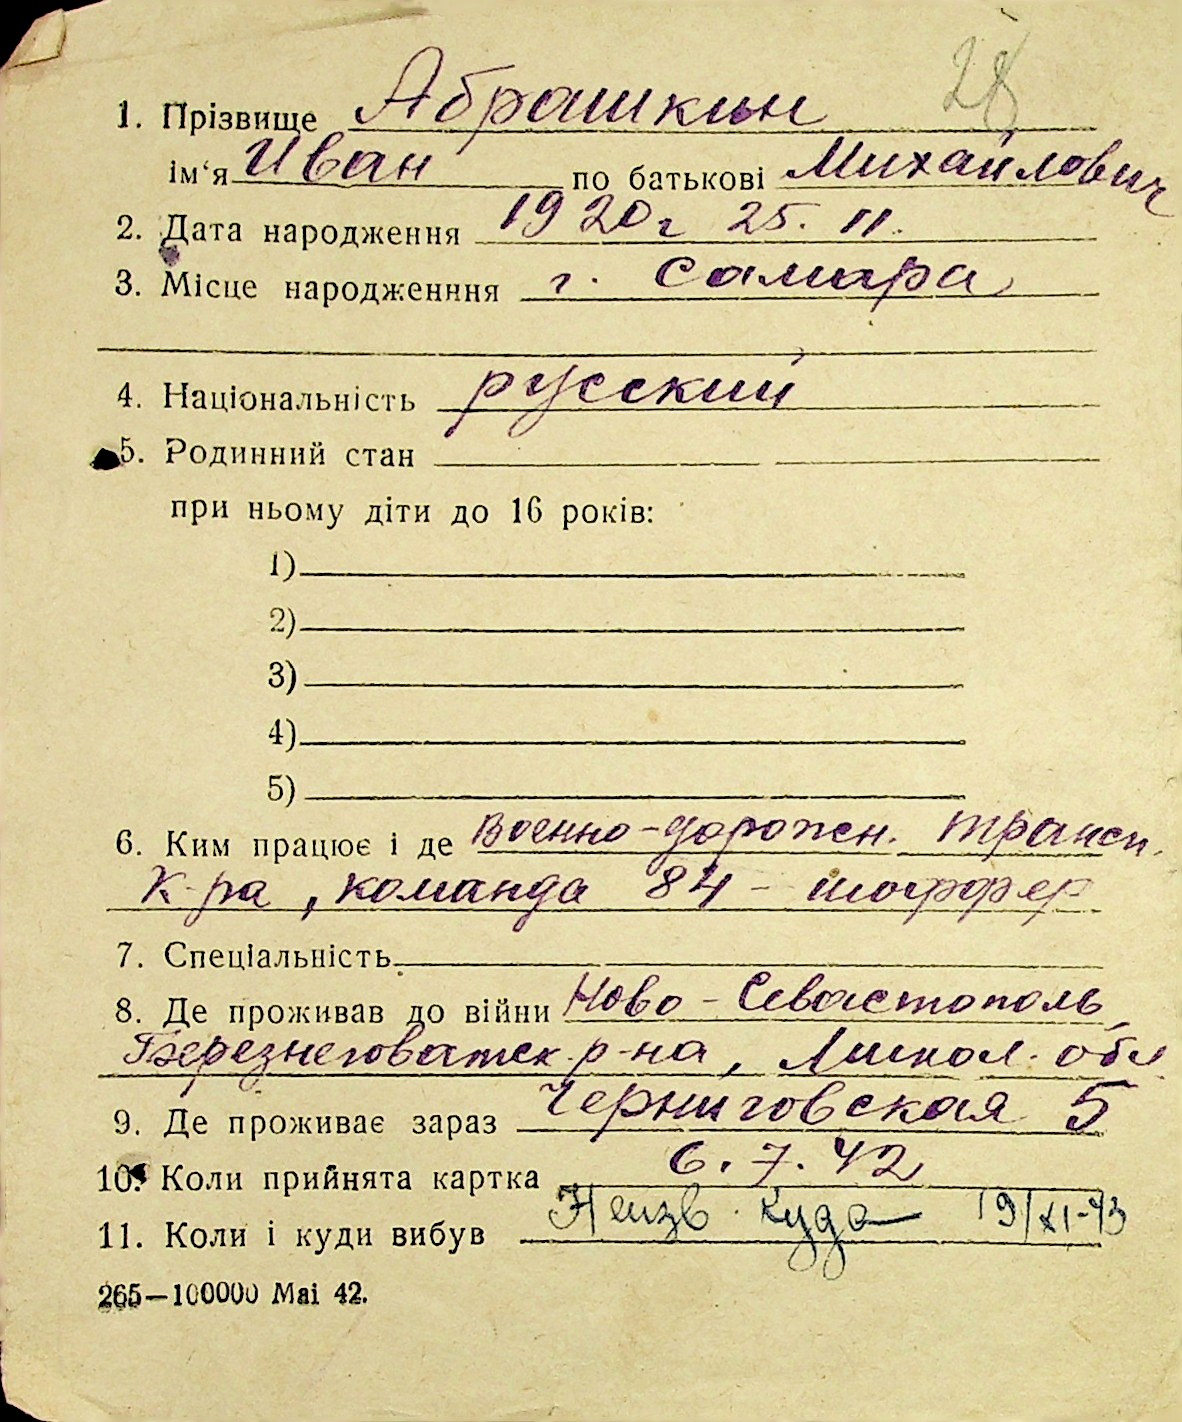 28
1. Прізвище Абрашкин
ім‘я Иван по батькові Михайлович
2. Дата народження 1920г 25. 11.
3. Місце народженння г. Самара
4. Національність русский
5. Родинний стан
при ньому діти до 16 років:
1)
2)
3)
4)
5)
6. Ким працює і де Военно-дорожн. трансп.
К-ра, команда 84 - шоффер
7. Спеціальність
8. Де проживав до війни Ново-Севастополь
Березнеговатск. р-на, Микол. обл
9. Де проживає зараз Черниговская 5
10. Коли прийнята картка 6. 7. 42
11. Коли і куди вибув Неизв. куда 19/XI-43
265—100000 Mai 42.